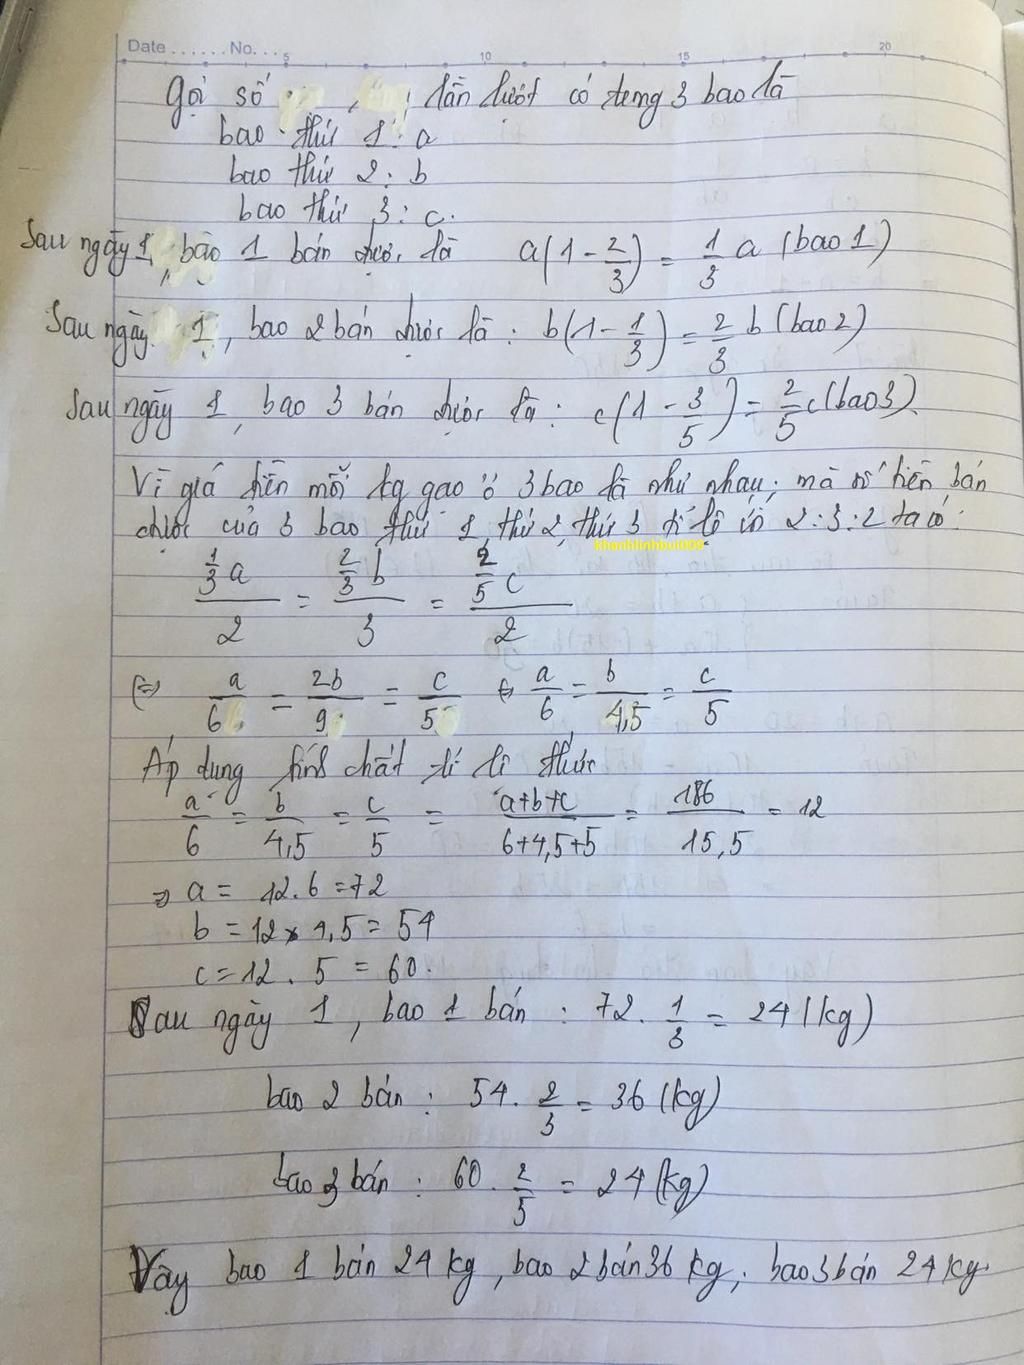 Date ...... No. ...
5 10 15 20
Gọi số , lần lượt có trong 3 bao là
bao thứ 1: a
bao thứ 2: b
bao thứ 3: c.
Sau ngày 1, bao 1 bán được là a(1 - 2/3) = 1/3 a (bao 1)
Sau ngày 1, bao 2 bán được là : b(1 - 1/3) = 2/3 b (bao 2)
Sau ngày 1, bao 3 bán được là : c(1 - 3/5) = 2/5 c (bao 3).
Vì giá tiền mỗi kg gạo ở 3 bao là như nhau, mà số tiền bán
được của 3 bao thứ 1, thứ 2, thứ 3 tỉ lệ với 2:3:2 ta có:
khanhlinhbui009
(1/3 a)/2 = (2/3 b)/3 = (2/5 c)/2
(=) a/6 = 2b/9 = c/5 (=) a/6 = b/4,5 = c/5
Áp dụng tính chất tỉ lệ thức
a/6 = b/4,5 = c/5 = (a+b+c)/(6+4,5+5) = 186/15,5 = 12
=> a = 12.6 = 72
b = 12 x 4,5 = 54
c = 12 . 5 = 60.
Sau ngày 1, bao 1 bán : 72 . 1/3 = 24 (kg)
bao 2 bán : 54 . 2/3 = 36 (kg)
bao 3 bán : 60 . 2/5 = 24 (kg)
Vậy bao 1 bán 24 kg, bao 2 bán 36 kg, bao 3 bán 24 kg.